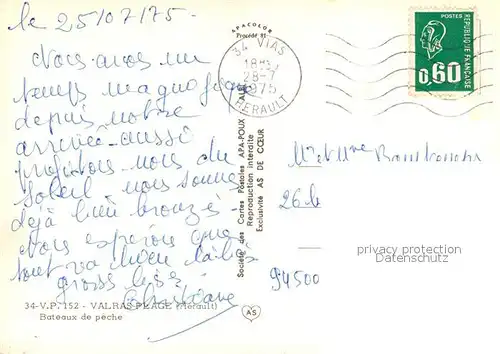 le 25/07/75 -
Nous avons un
temps magnifique
depuis notre
arrivée - aussi
profitons nous du
soleil - nous sommes
déjà bien bronzés
Nous espérons que
tout va bien là-bas
grosses bises
34-V.P. 152 - VALRAS-PLAGE (Hérault)
Bateaux de pêche
APACOLOR
Procédé
Société des Cartes Postales APA-POUX
Reproduction interdite
Exclusivité AS DE CŒUR
AS
34 VIAS
18H
28-7
1975
HERAULT
POSTES
REPUBLIQUE FRANÇAISE
0,60
Mr et Mme
26 b
94500
privacy protection
Datenschutz